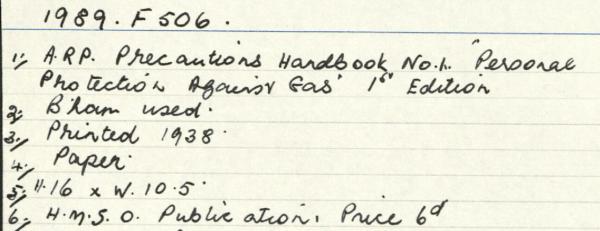 1989. F 506.
1, A.R.P. Precautions Handbook No.1. "Personal
Protection Against Gas" 1st Edition
2, B'ham used.
3, Printed 1938.
4, Paper.
5, H.16 x W. 10.5
6, H.M.S.O. Publication. Price 6d